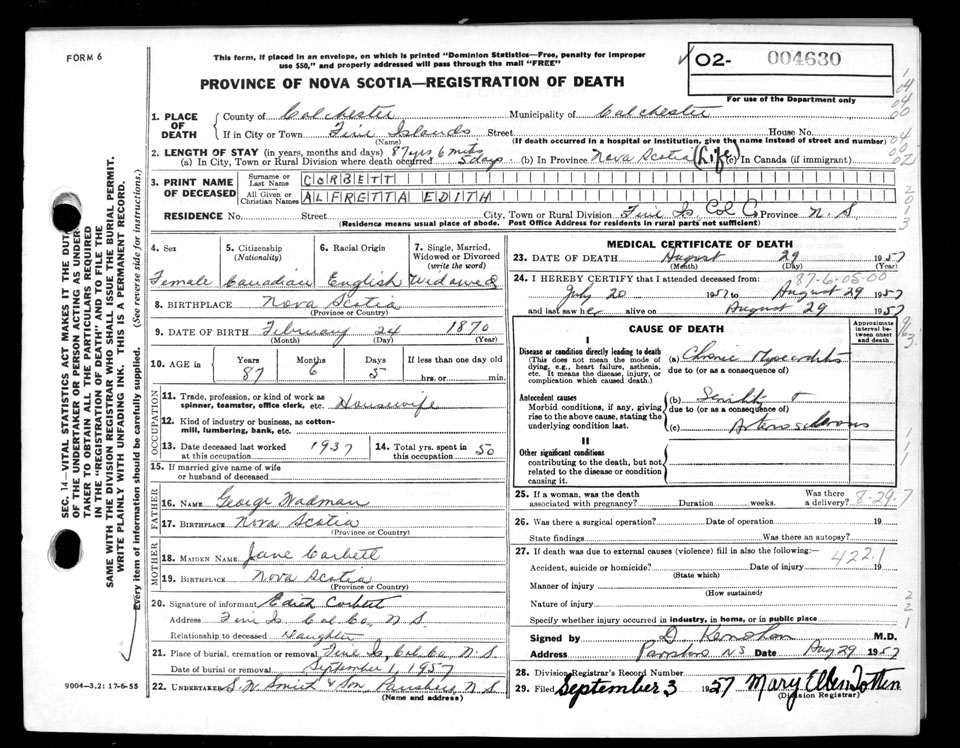 FORM 6
This form, if placed in an envelope, on which is printed "Dominion Statistics—Free, penalty for improper
use $50," and properly addressed will pass through the mail "FREE"
PROVINCE OF NOVA SCOTIA—REGISTRATION OF DEATH
02- 004630
For use of the Department only
1. PLACE OF DEATH
County of Colchester Municipality of Colchester
If in City or Town Five Islands Street House No.
(Name) (If death occurred in a hospital or institution, give the name instead of street and number)
2. LENGTH OF STAY (in years, months and days) 87 yrs 6 mths
(a) In City, Town or Rural Division where death occurred 5 days. (b) In Province Nova Scotia (Life) (c) In Canada (if immigrant)
3. PRINT NAME OF DECEASED
Surname or Last Name CORBETT
All Given or Christian Names ALFRETTA EDITH
RESIDENCE No. Street City, Town or Rural Division Five Is. Col Co Province N. S
(Residence means usual place of abode. Post Office Address for residents in rural parts not sufficient)
4. Sex
Female
5. Citizenship
(Nationality)
Canadian
6. Racial Origin
English
7. Single, Married,
Widowed or Divorced
(write the word)
Widowed
8. BIRTHPLACE Nova Scotia
(Province or Country)
9. DATE OF BIRTH February 24 1870
(Month) (Day) (Year)
10. AGE in
Years Months Days If less than one day old
87 6 5 hrs. or min.
OCCUPATION
11. Trade, profession, or kind of work as
spinner, teamster, office clerk, etc. Housewife
12. Kind of industry or business, as cotton-
mill, lumbering, bank, etc.
13. Date deceased last worked
at this occupation 1937
14. Total yrs. spent in
this occupation 50
15. If married give name of wife
or husband of deceased
FATHER
16. NAME George Wadman
17. BIRTHPLACE Nova Scotia
(Province or Country)
MOTHER
18. MAIDEN NAME Jane Corbett
19. BIRTHPLACE Nova Scotia
(Province or Country)
20. Signature of informant Edith Corbett
Address Five Is. Col. Co. N. S.
Relationship to deceased Daughter
21. Place of burial, cremation or removal Five Is. Col. Co. N. S
Date of burial or removal September 1, 1957
22. UNDERTAKER S. W. Smith & Son Parrsboro, N. S.
(Name and address)
MEDICAL CERTIFICATE OF DEATH
23. DATE OF DEATH August 29 1957
(Month) (Day) (Year)
87-6-05-00
24. I HEREBY CERTIFY that I attended deceased from:
July 20 1957 to August 29 1957
and last saw her alive on August 29 1957
CAUSE OF DEATH
Approximate interval between onset and death
I
Disease or condition directly leading to death
(This does not mean the mode of
dying, e.g., heart failure, asthenia,
etc. It means the disease, injury, or
complication which caused death.)
(a) Chronic Myocarditis
due to (or as a consequence of)
Antecedent causes
Morbid conditions, if any, giving
rise to the above cause, stating the
underlying condition last.
(b) Senility +
due to (or as a consequence of)
(c) Arteriosclerosis
II
Other significant conditions
contributing to the death, but not
related to the disease or condition
causing it.
25. If a woman, was the death
associated with pregnancy? Duration weeks. Was there
a delivery? 8-29-7
26. Was there a surgical operation? Date of operation 19
State findings Was there an autopsy?
27. If death was due to external causes (violence) fill in also the following:—
422.1
Accident, suicide or homicide? Date of injury 19
(State which)
Manner of injury
(How sustained)
Nature of injury
Specify whether injury occurred in industry, in home, or in public place
Signed by D. M.D.
Address Parrsboro NS Date Aug 29 1957
28. Division Registrar's Record Number
29. Filed September 3 1957 Mary Ellen Totten
(Division Registrar)
9004—3.2: 17-6-55
SEC. 14—VITAL STATISTICS ACT MAKES IT THE DUTY
OF THE UNDERTAKER OR PERSON ACTING AS UNDER-
TAKER TO OBTAIN ALL THE PARTICULARS REQUIRED
IN THE "REGISTRATION OF DEATH" AND TO FILE THE
SAME WITH THE DIVISION REGISTRAR WHO SHALL ISSUE THE BURIAL PERMIT.
WRITE PLAINLY WITH UNFADING INK. THIS IS A PERMANENT RECORD.
Every item of information should be carefully supplied. (See reverse side for instructions.)